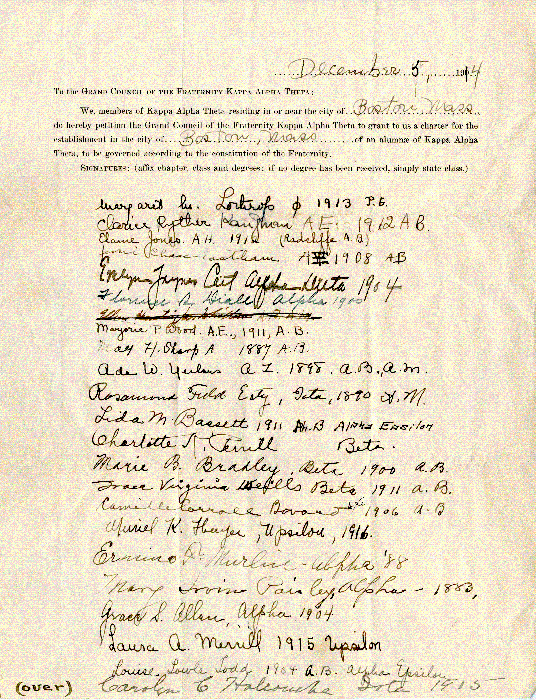 December 5, 1914
To the Grand Council of the Fraternity Kappa Alpha Theta:
We, members of Kappa Alpha Theta residing in or near the city of Boston Mass
do hereby petition the Grand Council of the Fraternity Kappa Alpha Theta to grant to us a charter for the
establishment in the city of Boston, Mass of an alumnæ of Kappa Alpha
Theta, to be governed according to the constitution of the Fraternity.
Signatures: (affix chapter, class and degrees; if no degree has been received, simply state class.)
Margarit Lothrop φ 1913
A.E. 1912 A.B.
Elaine Jones. A.H. 1912 (Radcliffe A.B)
1908 AB
Evelyn Jaynes Alpha 1904
Alpha 1900
Marjorie P. Wood. A.E., 1911, A.B.
May H. Sharp A 1887 A.B.
Ada W. 1898. A.B., A.M.
Rosamond Field Esty, Iota, 1890 A.M.
Lida M Bassett 1911 A.B Alpha Epsilon
Charlotte A. Terrill Beta.
Marie B. Bradley, Beta 1900 A.B.
Grace Virginia Wells Beta 1911 A.B.
Camelle Carroll 1906 A.B
Muriel K. Thayer, Upsilon, 1916.
Alpha '88
Mary Irvine Paisley, Alpha - 1883,
Grace S. Allen, Alpha 1904
Laura A. Merrill 1915 Upsilon
Louise 1904 A.B. Alpha Epsilon
(over) Carolyn E Holcombe Iota 1915